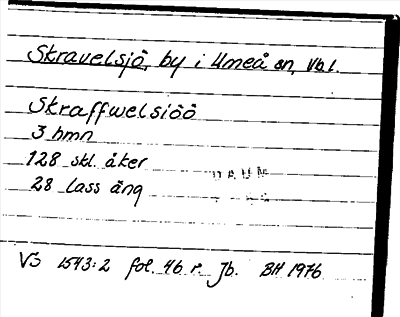 Stravelsjö, by i Umeå sn, Vbl.
Straffwelsiöö
3 hmn
128 skl. åker
DAUM
28 lass äng
VS 1543:2 fol. 46 r. Jb. BH 1976